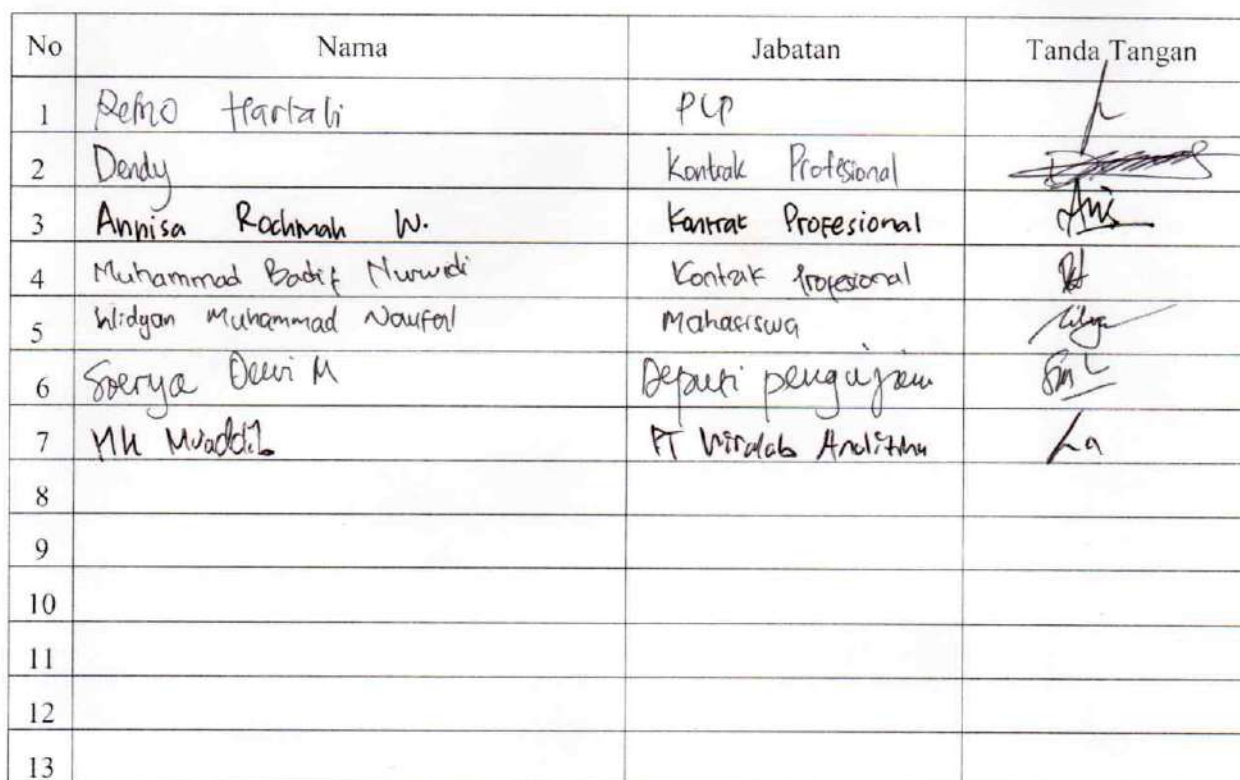 No Nama Jabatan Tanda Tangan
1 Retno Hartati PLP
2 Dendy Kontrak Profesional
3 Annisa Rochmah W. Kontrak Profesional
4 Muhammad Badif Nurwidi Kontrak Profesional
5 Widyan Muhammad Naufal Mahasiswa
6 Soerya Dewi M Deputi pengujian
7 Muaddib PT
8
9
10
11
12
13